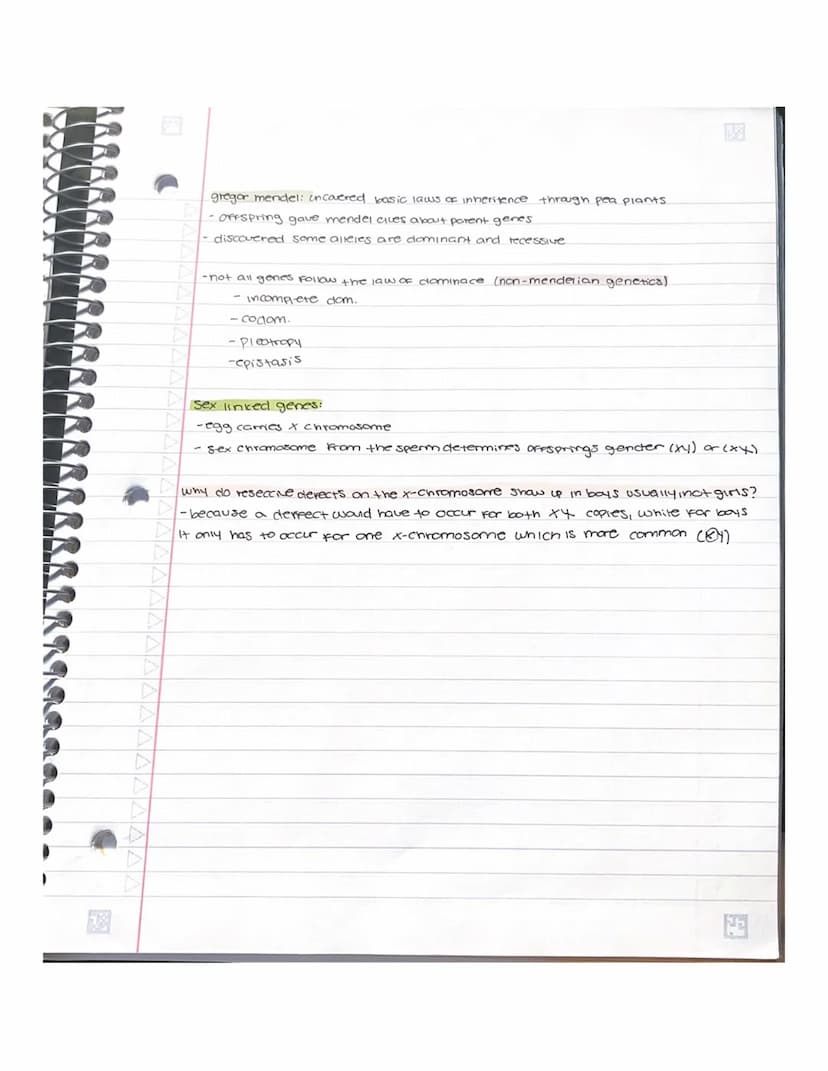 gregor mendel: uncovered basic laws of inheritence through pea plants
- offspring gave mendel clues about parent genes
- discovered some alleles are dominant and recessive
- not all genes follow the law of dominace (non-menderian genetics)
- incomplete dom.
- codom.
- pleotropy
- epistasis
sex linked genes:
- egg carries x chromosome
- sex chromosome from the sperm determines offsprings gender (xy) or (xx)
why do resecive defects on the x-chromosome show up in boys usually, not girls?
- because a deffect would have to occur for both xx copies, while for boys
it only has to occur for one x-chromosome which is more common (xy)